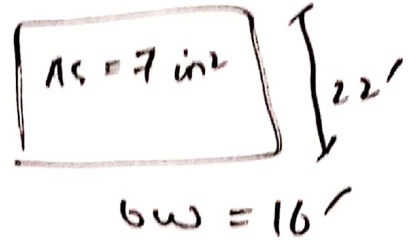 As = 7 in²
22'
bw = 16'